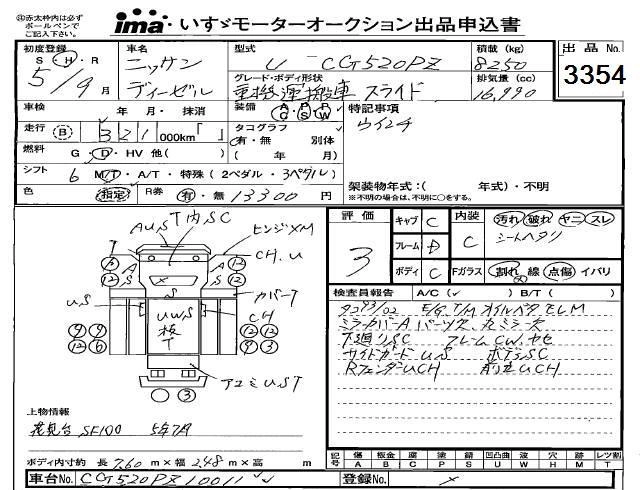 ㊟赤太枠内は必ず
ボールペンで
ご記入下さい。
ima・いすゞモーターオークション出品申込書
初度登録 車名 型式 積載(kg) 出品No.
S・H・R ニッサン U-CG520PZ 8250 3354
5年9月 ディーゼル グレード・ボディ形状 排気量(cc)
重機運搬車 スライド 16,990
車検 年 月・抹消 装備 A・P・P C・S・W 特記事項
走行 B 321000km「 」 タコグラフ 有・無 別体 ウインチ
燃料 G・D・HV 他( ) ( 年 月)
シフト 6 M/T・A/T・特殊(2ペダル・3ペダル) 架装物年式:( 年式)・不明
色 指定 R券 有・無 13300円 ※不明な場合は、年式を記入せず不明に○をする。
評価 キャブ C 内装 汚れ 破れ ヤニ スレ
3 フレーム D C シートヘタリ
ボディ C Fガラス 割れ 線 点傷 イバリ
検査員報告 A/C(✓ ) B/T( )
タコ93/02 E/G,T/M オイルベタモレM
ミラーカバーA パーツ欠,左ミラー欠
下廻りSC フレームCW,ヤセ
サイドガードUS ボデーSC
RフェンダーUCH 前左UCH
AUS T内SC ヒンジXM
T CH.U
12 A S A 12
12 12
US UWS カバーT
板 CH
T
9 9 12 12
12 6 9 3
アユミUST
3
上物情報
花見台 SF100 5年7月
ボディ内寸約 長 7.60 m×幅 2.48 m×高 m
記号 傷A 板金B 腐C 塗P 錆S 凹凸曲U 波W 穴H 跡M レツ割T
車台No. CG520PZ10011 登録No. ×